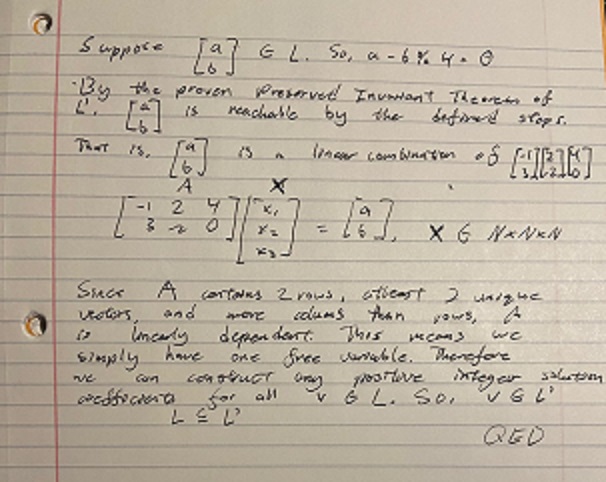 Suppose [a b] ∈ L. So, a - b % 4 = 0
By the proven Preserved Invariant Theorem of
L', [a b] is reachable by the defined steps.
That is, [a b] is a linear combination of [-1 3][2 -2][4 0]
A X
[-1 2 4 3 -2 0][x₁ x₂ x₃] = [a b], X ∈ N×N×N
Since A contains 2 rows, atleast 2 unique
vectors, and more colums than rows, A
is linearly dependent. This means we
simply have one free variable. Therefore
we can construct any positive integer solution
coefficients for all v ∈ L. So, v ∈ L'
L ⊆ L'
QED